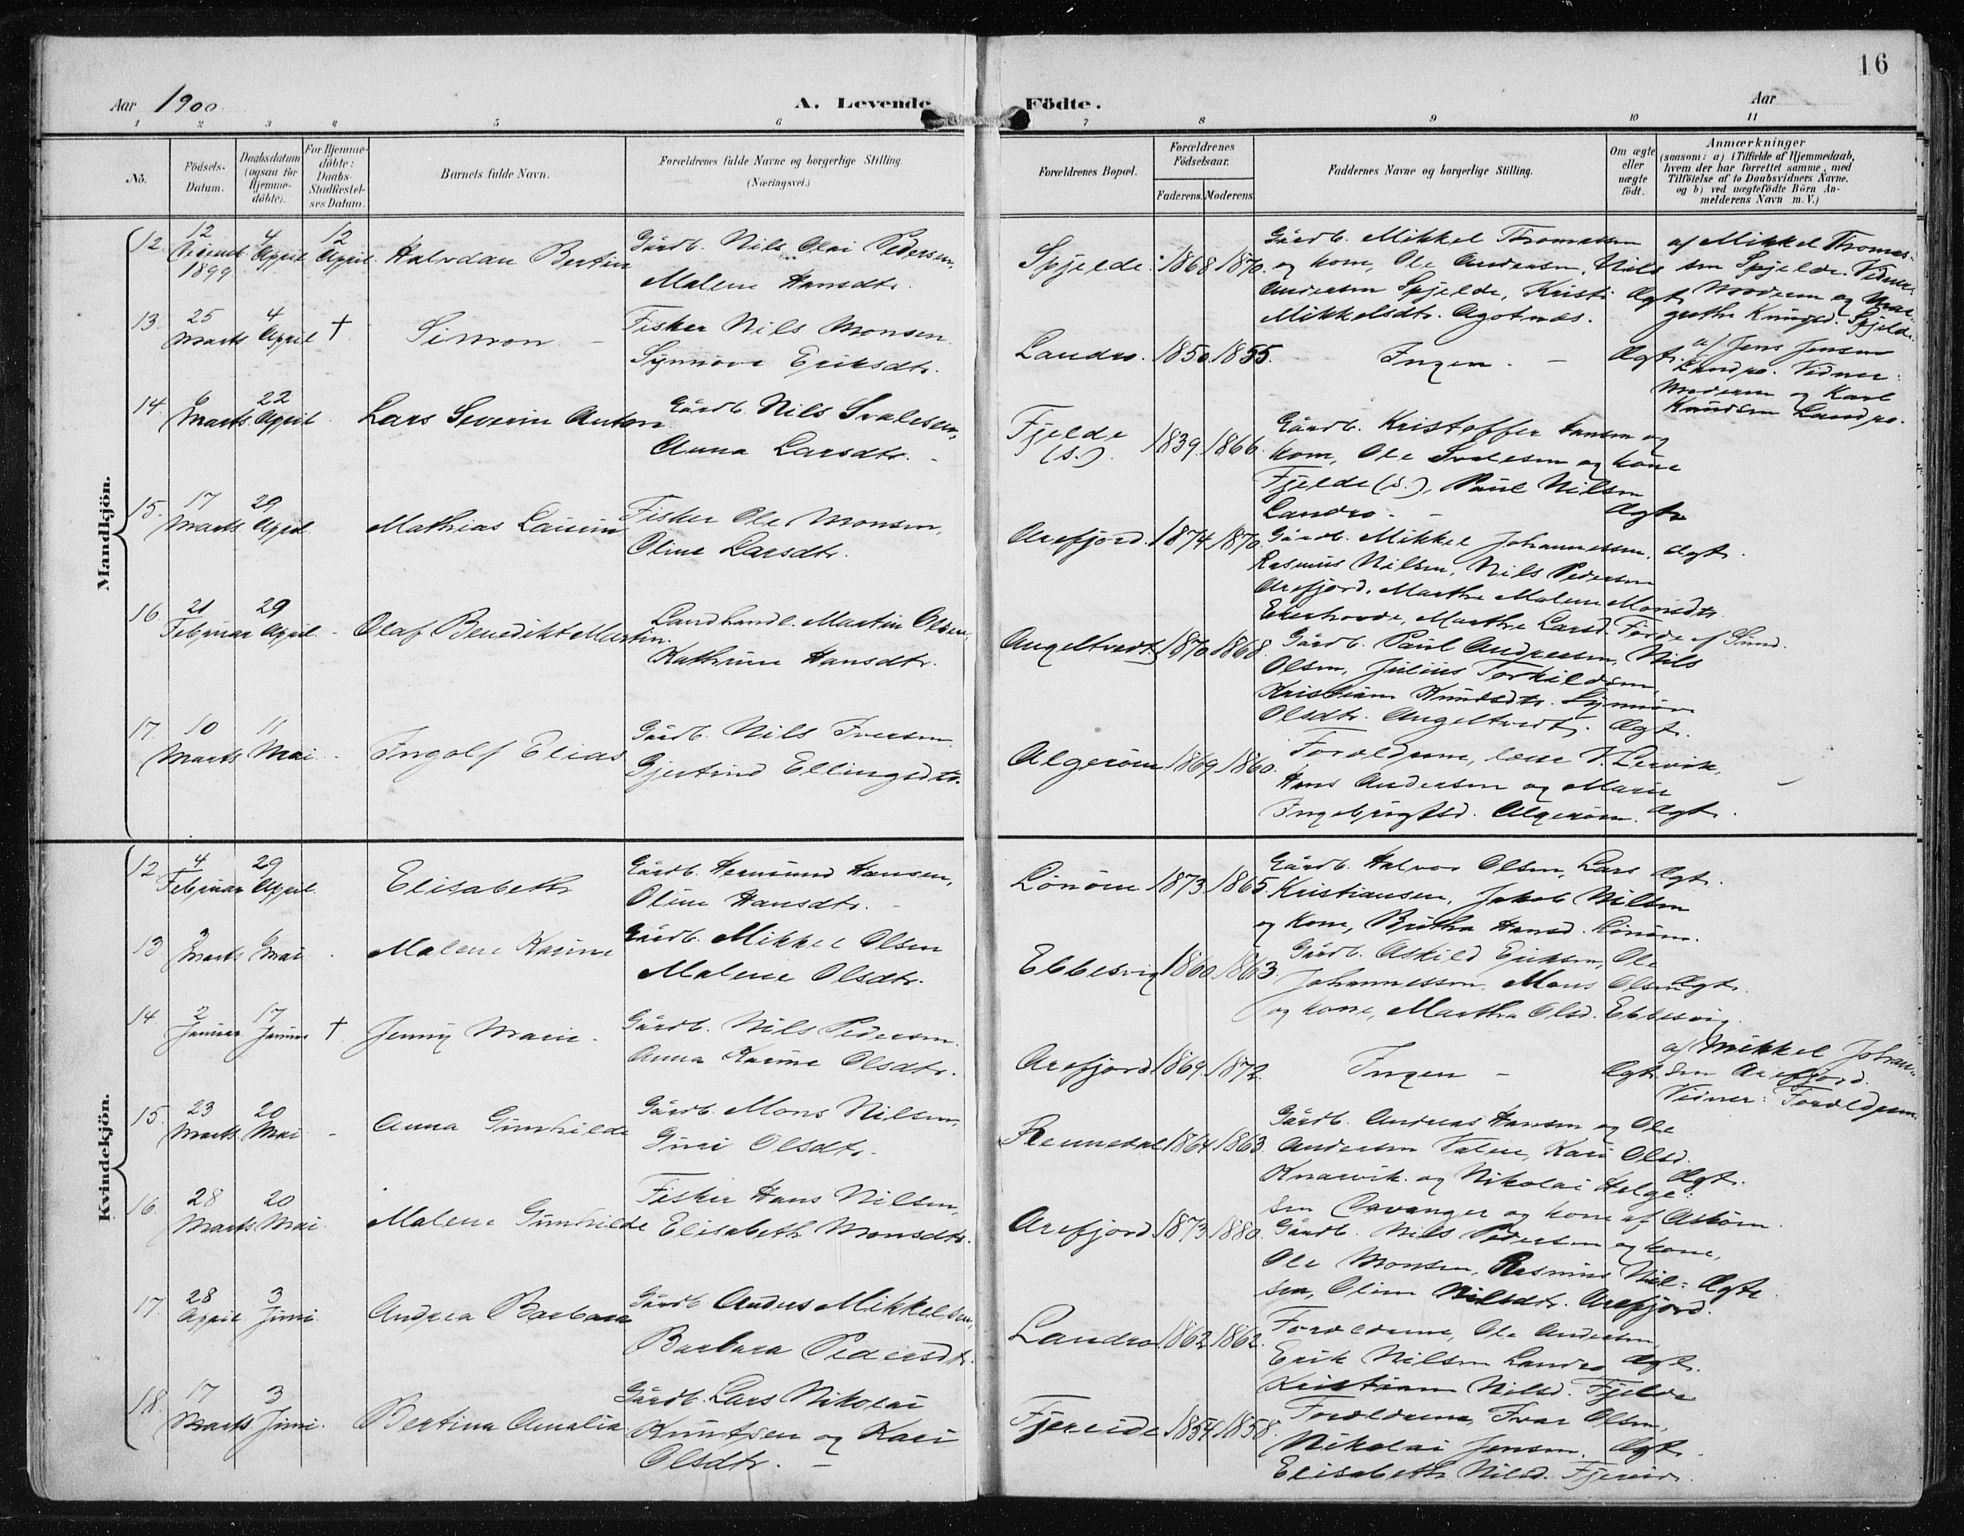 16
Aar 1900
A. Levende Födte.
Aar
1 2 3 4 5 6 7 8 9 10 11
No.
Födsels-Datum.
Daabsdatum (ogsaa for Hjemme-döbte).
For Hjemme-döbte: Daabs-Stadfæstel-ses Datum.
Barnets fulde Navn.
Forældrenes fulde Navne og borgerlige Stilling.
(Næringsvei.)
Forældrenes Bopæl.
Forældrenes Födselsaar.
Faderens. Moderens.
Faddernes Navne og borgerlige Stilling.
Om ægte eller uægte födt.
Anmærkninger
(saasom: a) i Tilfælde af Hjemmedaab,
hvem der har forrettet samme, med
Tilföielse af to Daabsvidners Navne.
og b) ved uægtefödte Börn An-
melderens Navn m. V.)
Mandkjön.
12. 12 Decemb 1899 4 April 12 April Halvdan Bertin
Gårdb. Nils Olai Pedersen,
Malene Hansdtr.
Spjelde. 1868 1870.
Gårdb. Mikkel Thomassen
og kone, Ole Andersen, Nils
Andersen Spjelde, Kristi
Mikkelsdtr. Agotnæs.
Ægt.
af Mikkel Thomas-
sen Spjelde. Vidne:
Moderen og Mar-
grethe Knutsd. Spjelde.
13. 25 Marts 4 April † Simon
Fisker Nils Monsen
Synnöve Eriksdtr.
Landro. 1850 1855. Ingen. Ægt.
af Jens Jensen
Landro. Vidner:
Moderen og Karl
Knudsen Landro.
14. Marts 22 April Lars Severin Anton
Gårdb. Nils Svalesen,
Anna Larsdtr.
Fjelde (s.). 1839. 1866.
Gårdb. Kristoffer Hansen og
kone, Ole Svalesen og kone
Fjelde (s.), Paul Nilsen
Landro. Ægt.
15. 17 Marts 29 April Mathias
Fisker Ole Monsen,
Oline Larsdtr.
Arefjord. 1874 1870.
Gårdb. Mikkel Johannessen,
Rasmus Nilsen, Nils Pedersen
Arefjord, Marthe Malene Monsdtr.
Ekerhovde, Marthe Larsd. Förde af Sund.
Ægt.
16. 21 Februar 29 April Olaf Benedikt Martin
Landhandl. Martin Olsen,
Kathrine Hansdtr.
Angeltvedt. 1870 1868.
Gårdb. Paul Andersen, Nils
Olsen, Julius Torkildsen,
Kristiane Knudsdtr. Synnöv
Olsdtr. Angeltvedt. Ægt.
17. 10 Marts 11 Mai Ingolf Elias
Gårdb. Nils Iversen
Gjertrud Ellingsdtr.
Algeröen 1869 1860.
Forældrene, lærer V. Lervik,
Hans Andersen og Marie
Ingebrigtsd. Algeröen. Ægt.
Kvindekjön.
12. 4 Februar 29 April Elisabeth
Gårdb. Hermund Hansen,
Oline Hansdtr.
Lönöen 1873. 1865.
Gårdb. Halvor Olsen, Lars
Kristiansen, Jakob Nilsen
og kone, Britha Hansd. Lönöen.
Ægt.
13 Marts 6 Mai Malene Karine
Gårdb. Mikkel Olsen
Malene Olsdtr.
Ebbesvig 1860. 1863.
Gårdb. Askild Eriksen, Ole
Johannessen, Mons Olsen
og kone, Martha Olsd. Ebbesvig.
Ægt.
14 2 Januar 17 Januar † Jenny Marie
Gårdb. Nils Pedersen
Anna Karine Olsdtr.
Arefjord 1869. 1872. Ingen Ægt.
af Mikkel Johan-
sen Arefjord.
Vidner: Forældrene
15. 23 Marts 20 Mai Anna Gunhilde
Gårdb. Mons Nilsen,
Guri Olsdtr.
1864 1863
Gårdb. Andreas Hansen og Ole
Andersen Valen, Kari Olsd.
Knarvik og Nikolai Helge-
sen Davanger og kone af Asköen.
Ægt.
16. 28 Marts 20 Mai Malene Gunhilde
Fisker Hans Nilsen,
Elisabeth Monsdtr.
Arefjord 1873 1880.
Gårdb. Nils Pedersen og kone,
Ole Monsen, Rasmus Niel-
sen, Oline Nilsdtr. Arefjord.
Ægte
17. 28 April 3 Juni Andrea Barbara
Gårdb. Anders Mikkelsen,
Barbara Pedersdtr.
Landro 1862 1862.
Forældrene, Ole Andersen
Erik Nilsen Landro
Kristiane Nilsd. Fjelde
Ægt.
18. 17 Marts 3 Juni Bertina Amalia
Gårdb. Lars Nikolai
Knutsen og Kari
Olsdtr.
Fjereide 1854 1858.
Forældrene, Ivar Olsen,
Nikolai Jensen, Ægt.
Elisabeth Nilsd. Fjereide.